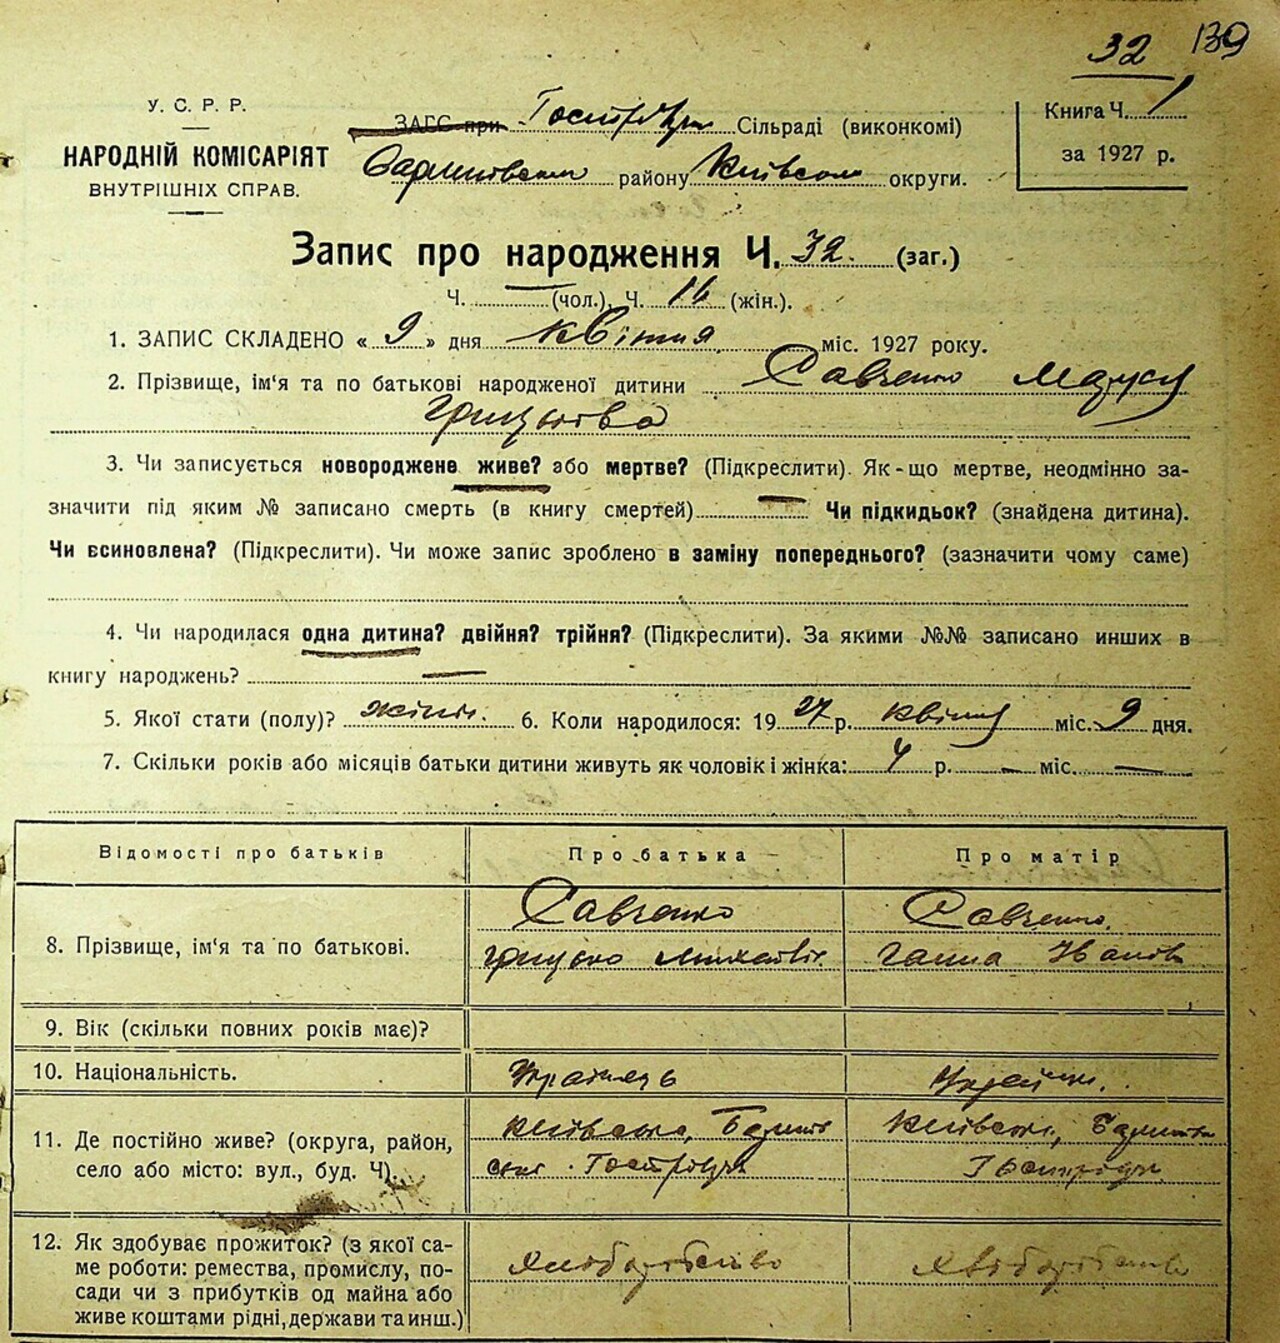 32 139
У. С. Р. Р.
НАРОДНІЙ КОМІСАРІЯТ
ВНУТРІШНІХ СПРАВ.
ЗАГС при Сільраді (виконкомі)
району округи.
Книга Ч. 1
за 1927 р.
Запис про народження Ч. 32. (заг.)
Ч. — (чол.), Ч. 16 (жін.).
1. ЗАПИС СКЛАДЕНО « 9 » дня квітня міс. 1927 року.
2. Прізвище, ім'я та по батькові народженої дитини Савченко Маруся
Грицьківа
3. Чи записується новороджене живе? або мертве? (Підкреслити). Як-що мертве, неодмінно за-
значити під яким № записано смерть (в книгу смертей) — Чи підкидьок? (знайдена дитина).
Чи всиновлена? (Підкреслити). Чи може запис зроблено в заміну попереднього? (зазначити чому саме)
4. Чи народилася одна дитина? двійня? трійня? (Підкреслити). За якими №№ записано инших в
книгу народжень? —
5. Якої стати (полу)? жіноч. 6. Коли народилося: 19 27 р. квітня міс. 9 дня.
7. Скільки років або місяців батьки дитини живуть як чоловік і жінка: 4 р. — міс. —
Відомості про батьків Про батька Про матір
8. Прізвище, ім'я та по батькові. Савченко Савченко
Грицько Ганна
9. Вік (скільки повних років має)?
10. Національність. Українець
11. Де постійно живе? (округа, район,
село або місто: вул., буд. Ч).
12. Як здобуває прожиток? (з якої са-
ме роботи: ремества, промислу, по-
сади чи з прибутків од майна або
живе коштами рідні, держави та инш.)